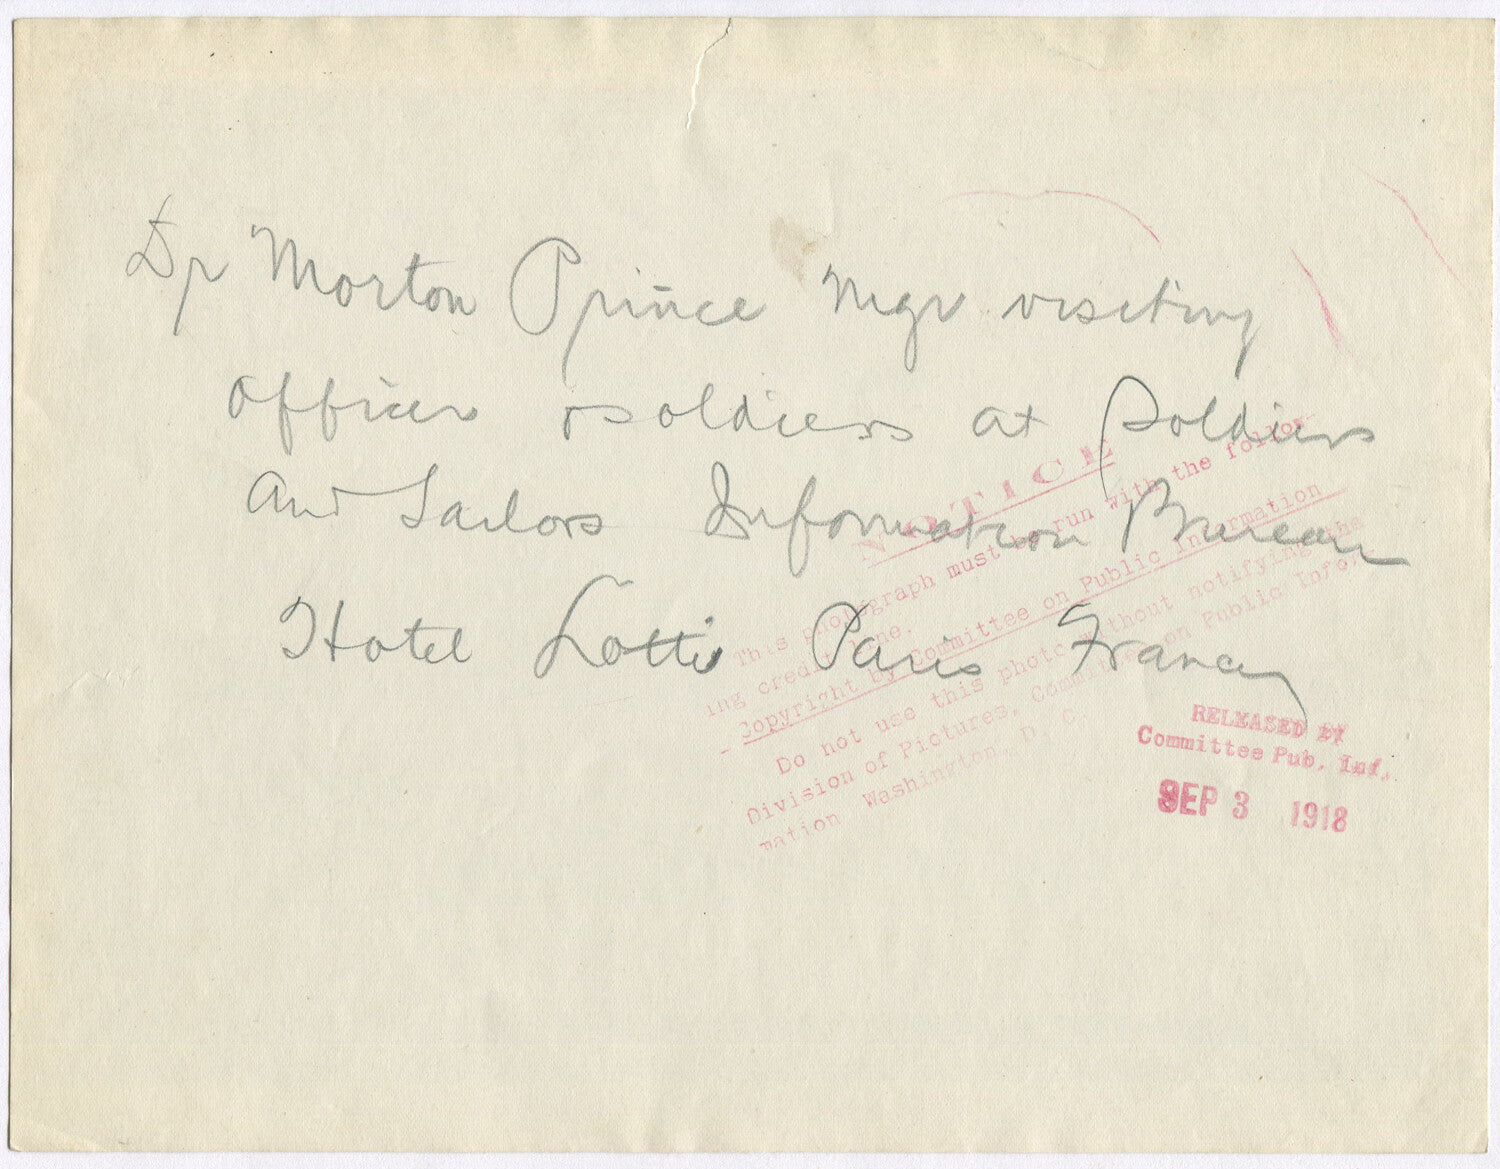 Dr Morton Prince Mgr visiting
officers & soldiers at Soldiers
and Sailors Information Bureau
Hotel Lotti Paris France
NOTICE
This photograph must be run with the follow-
ing credit line.
Copyright by Committee on Public Information
Do not use this photo without notifying the
Division of Pictures, Committee on Public Infor-
mation Washington, D. C.
RELEASED BY
Committee Pub. Inf.
SEP 3 1918